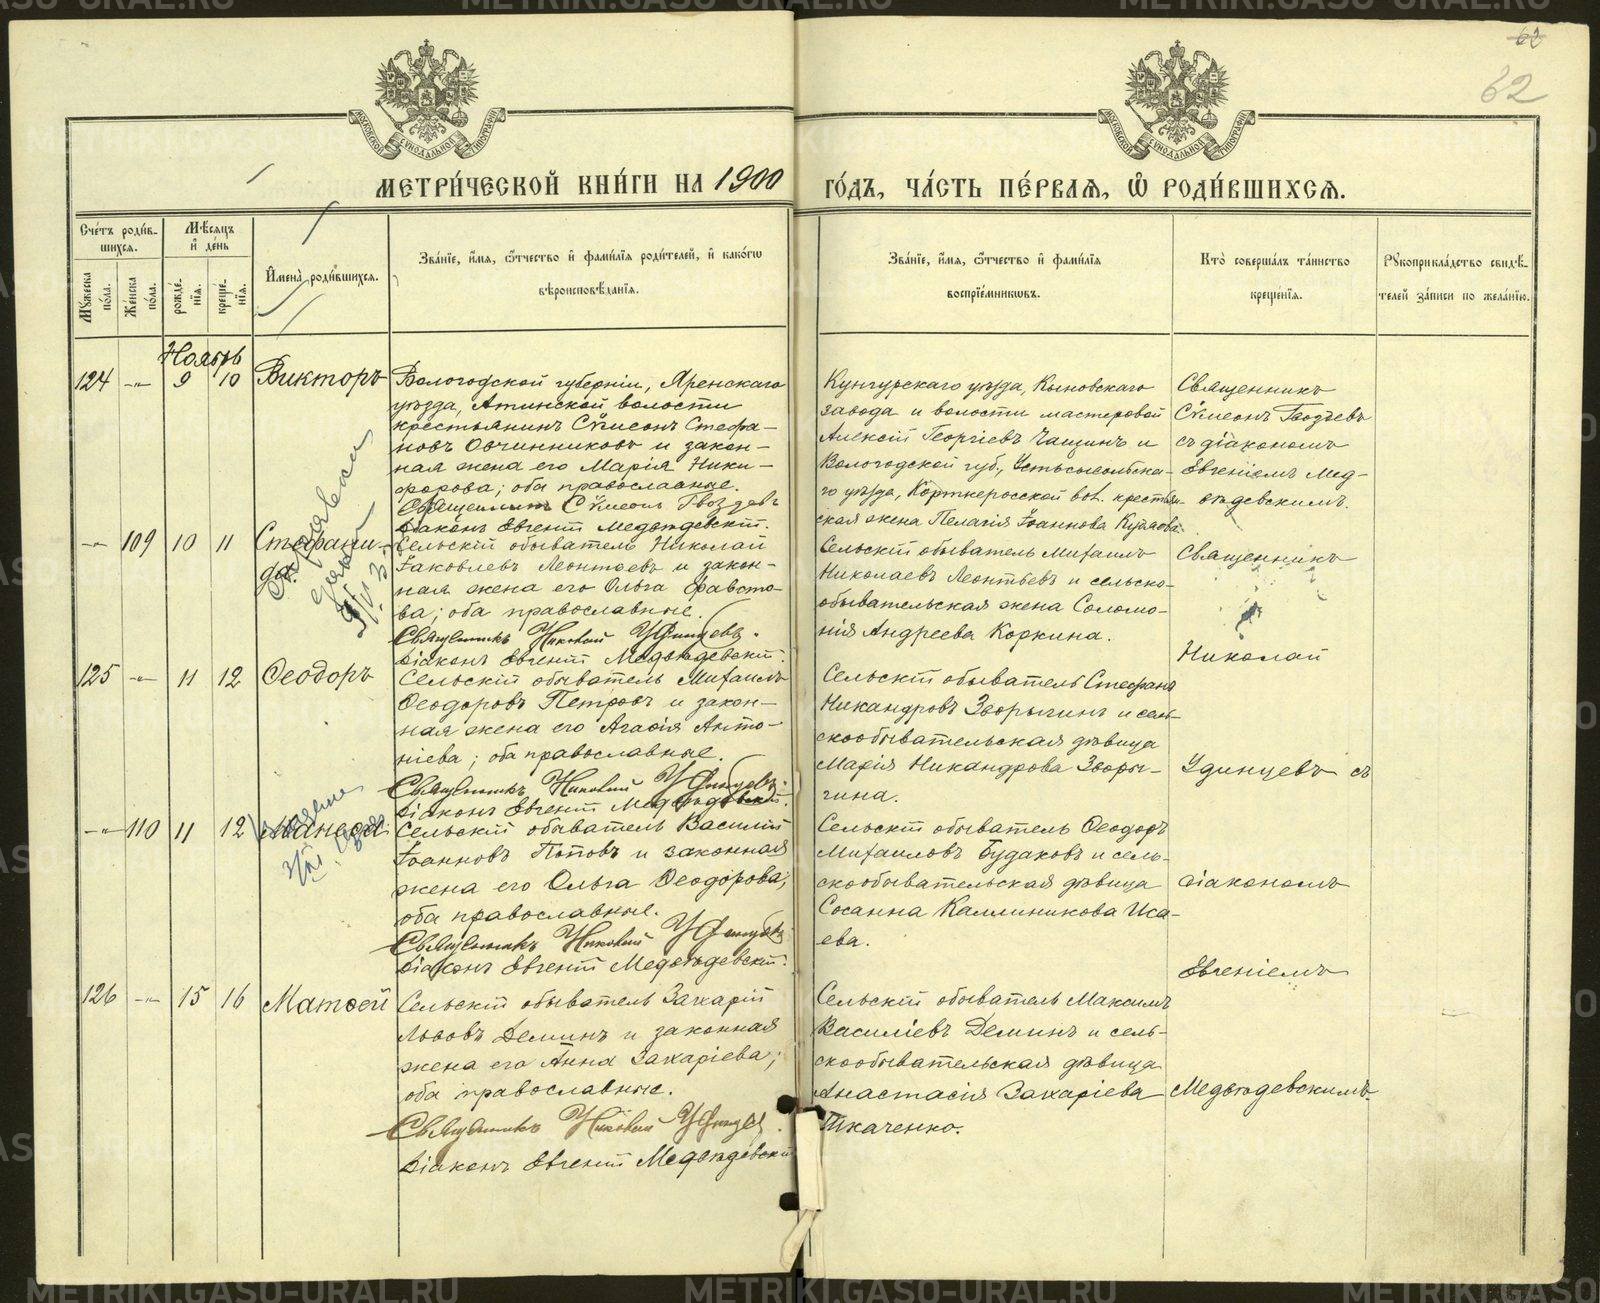 62
62
МЕТРИ́ЧЕСКОЙ КНИ́ГИ НА 1900
ГО́ДЪ, ЧА́СТЬ ПЕ́РВАЯ, Ѽ РОДИ́ВШИХСЯ.
Сче́тъ роди́в-
шихся.
Мꙋ́жеска по́ла.
Же́нска по́ла.
Мѣ́сяцъ
и҆ де́нь
рожде́-
нїя.
креще́-
нїя.
И҆мена̀ роди́вшихся.
Зва́нїе, и҆́мя, ѻ҆́тчество и҆ фами́лїя роди́телей, и҆ како́гѡ
вѣроисповѣ́данїя.
Зва́нїе, и҆́мя, ѻ҆́тчество и҆ фами́лїя
воспрїе́мникѡвъ.
Кто̀ соверша́лъ та́инство
креще́нїя.
Рꙋкоприкла́дство свидѣ́-
телей за́писи по жела́нїю.
Ноябрь
124 -„- 9 10 Викторъ
Вологодской губерніи, Яренскаго
уѣзда,
волости
крестьянинъ Сѵмеонъ Стефа-
новъ Овчинниковъ и закон-
ная жена его Марія Ники-
форова; оба православные.
Священникъ Сѵмеонъ Гвоздевъ
Діаконъ Евгеній Медвѣдевскій.
Кунгурскаго уѣзда, Кыновскаго
завода и волости мастеровой
Алексій Георгіевъ Чащинъ и
Вологодской губ., Устьсысольска-
го уѣзда, Корткеросской вол. крестьян-
ская жена Пелагія Іоаннова
Священникъ
Сѵмеонъ Гвоздевъ
съ діакономъ
Евгеніемъ Мед-
вѣдевскимъ.
-„- 109 10 11 Стефани-
да.
Сельскій обыватель Николай
Іаковлевъ Леонтьевъ и закон-
ная жена его Ольга Фавсто-
ва; оба православные.
Священникъ Николай Удинцевъ.
Діаконъ Евгеній Медвѣдевскій.
Сельскій обыватель Михаилъ
Николаевъ Леонтьевъ и сельско-
обывательская жена Соломо-
нія Андреева Коркина.
Священникъ
Николай
125 -„- 11 12 Ѳеодоръ
Сельскій обыватель Михаилъ
Ѳеодоровъ Петровъ и закон-
ная жена его Агафія Анто-
ніева; оба православные.
Священникъ Николай Удинцевъ.
Діаконъ Евгеній Медвѣдевскій.
Сельскій обыватель Стефанъ
Никандровъ Зворыгинъ и сель-
скообывательская дѣвица
Марія Никандрова Зворы-
гина.
Удинцевъ съ
-„- 110 11 12
Сельскій обыватель Василій
Іоанновъ Поповъ и законная
жена его Ольга Ѳеодорова;
оба православные.
Священникъ Николай Удинцевъ
Діаконъ Евгеній Медвѣдевскій.
Сельскій обыватель Ѳеодоръ
Михаиловъ Будаковъ и сель-
скообывательская дѣвица
Сосанна Каллиникова Иса-
ева.
діакономъ
Евгеніемъ
126 -„- 15 16 Матѳей
Сельскій обыватель Захарій
Львовъ Деминъ и законная
жена его Анна Захаріева;
оба православные.
Священникъ Николай Удинцев.
Діаконъ Евгеній Медвѣдевскій
Сельскій обыватель Максимъ
Василіевъ Деминъ и сель-
скообывательская дѣвица
Анастасія Захаріева
Ткаченко.
Медвѣдевскимъ.
METRIKI.GASO-URAL.RU